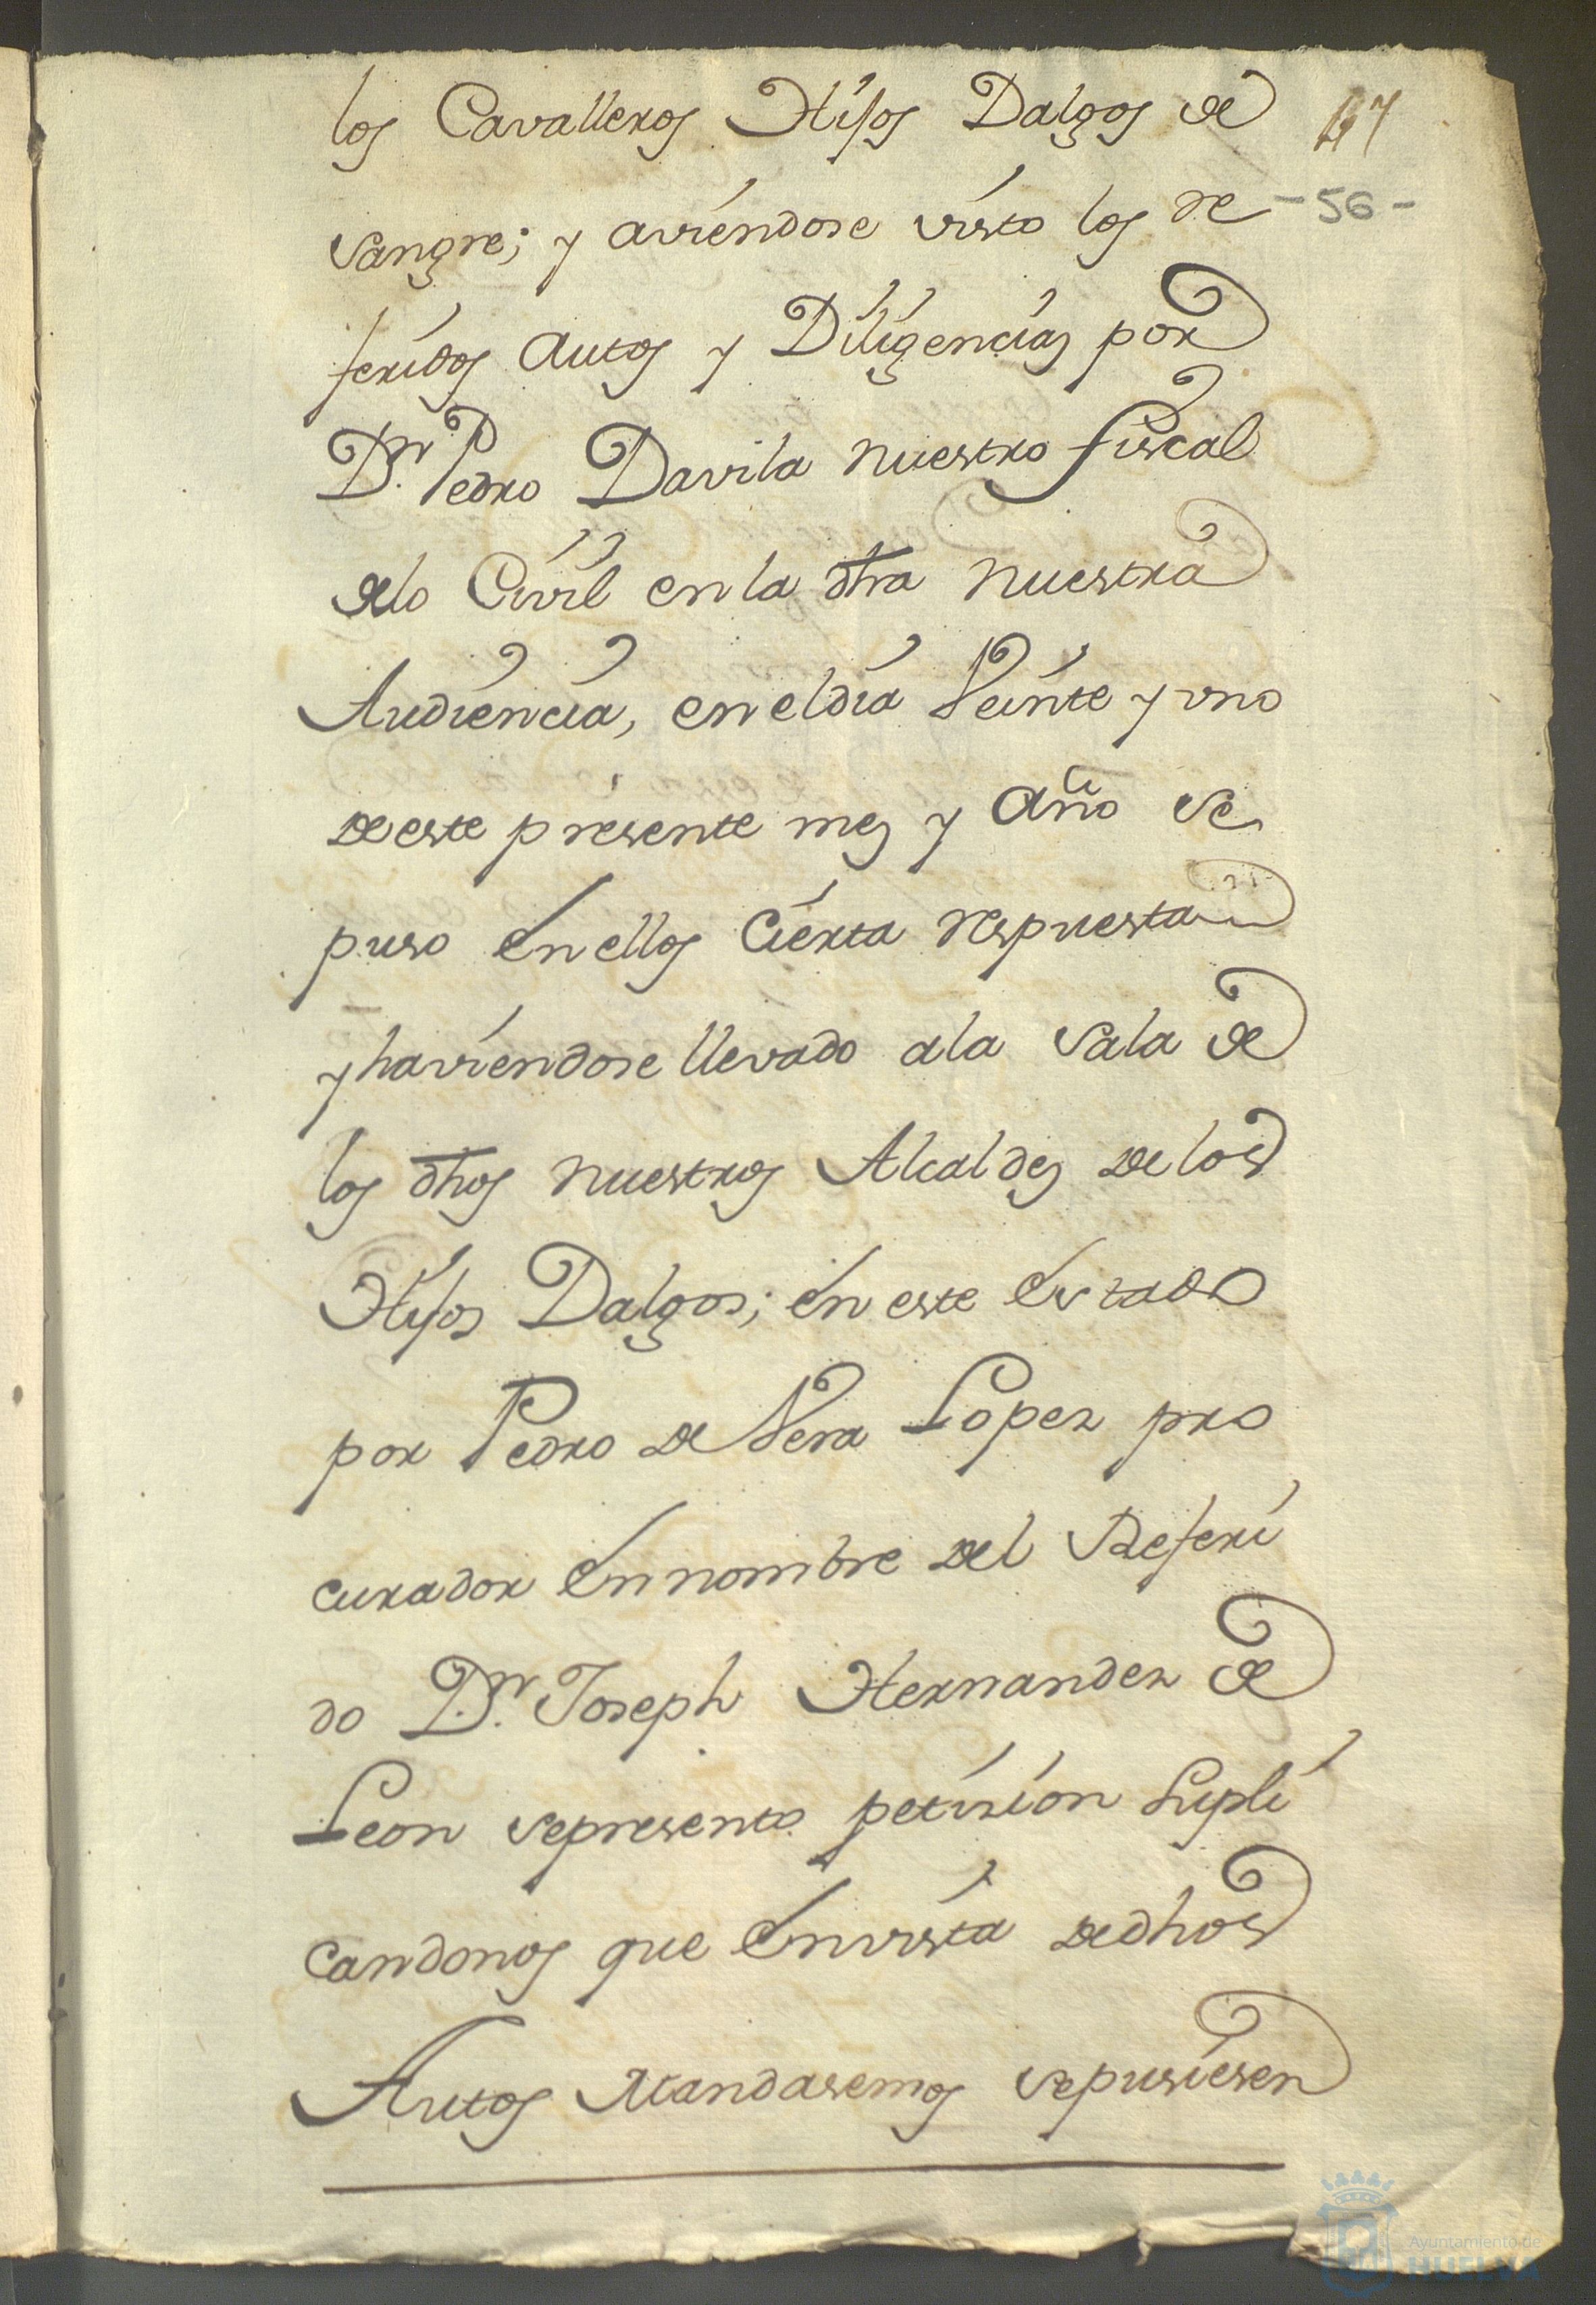 los Cavalleros Hijos Dalgos de
- 56 -
sangre; y aviendose visto los re
feridos autos y Diligencias por
Dn. Pedro Davila nuestro fiscal
delo Civil en la dha nuestra
Audiencia, en el dia Veinte y uno
de este presente mes y año se
puso en ellos cierta respuesta
y haviendose llevado a la sala de
los dhos nuestros Alcaldes de los
Hijos Dalgos; en este estado
por Pedro de Vera Lopez pro
curador en nombre del Referi
do Dn. Joseph Hernandez de
Leon se presento petizion supli
candonos que en vista de dhos
Autos Mandasemos se pusiesen
Ayuntamiento de
HUELVA